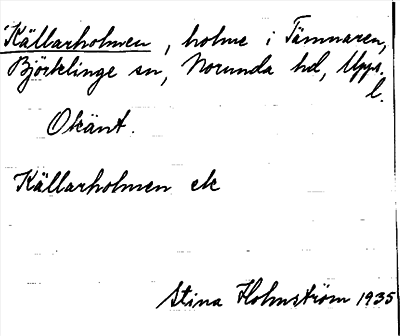 Källarholmen, holme i Tämnaren,
Björklinge sn, Norunda hd, Upps.
l.
Okänt.
Källarholmen ek
Stina Holmström 1935